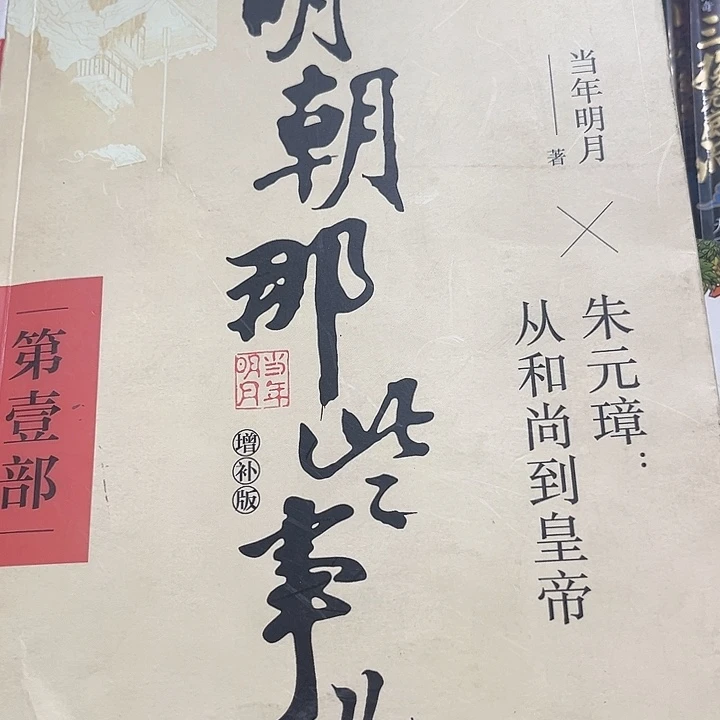 明朝那些事儿
当年明月
著
朱元璋：
从和尚到皇帝
当年明月
增补版
第壹部